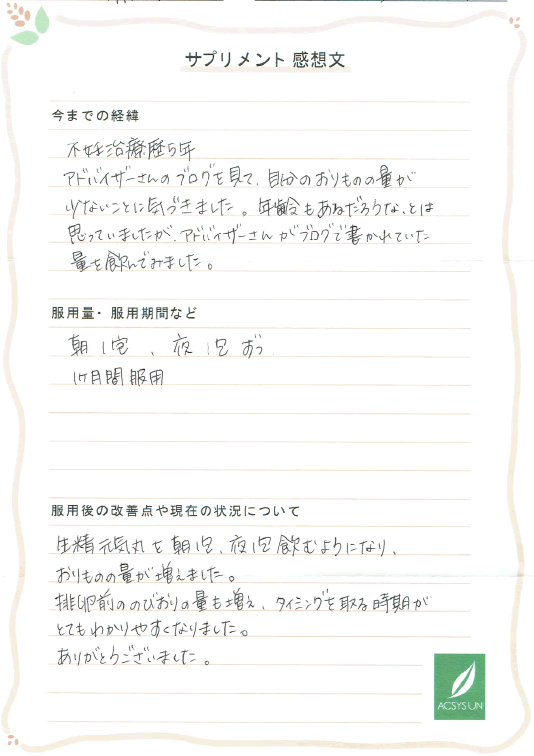 サプリメント 感想文
今までの経緯
不妊治療歴5年
アドバイザーさんのブログを見て、自分のおりものの量が
少ないことに気づきました。年齢もあるだろうな、とは
思っていましたが、アドバイザーさんがブログで書かれていた
量を飲んでみました。
服用量・服用期間など
朝1包、夜1包ずつ
1ケ月間服用
服用後の改善点や現在の状況について
生精元気丸を朝1包、夜1包飲むようになり、
おりものの量が増えました。
排卵前ののびおりの量も増え、タイミングを取る時期が
とてもわかりやすくなりました。
ありがとうございました。
ACSYSUN